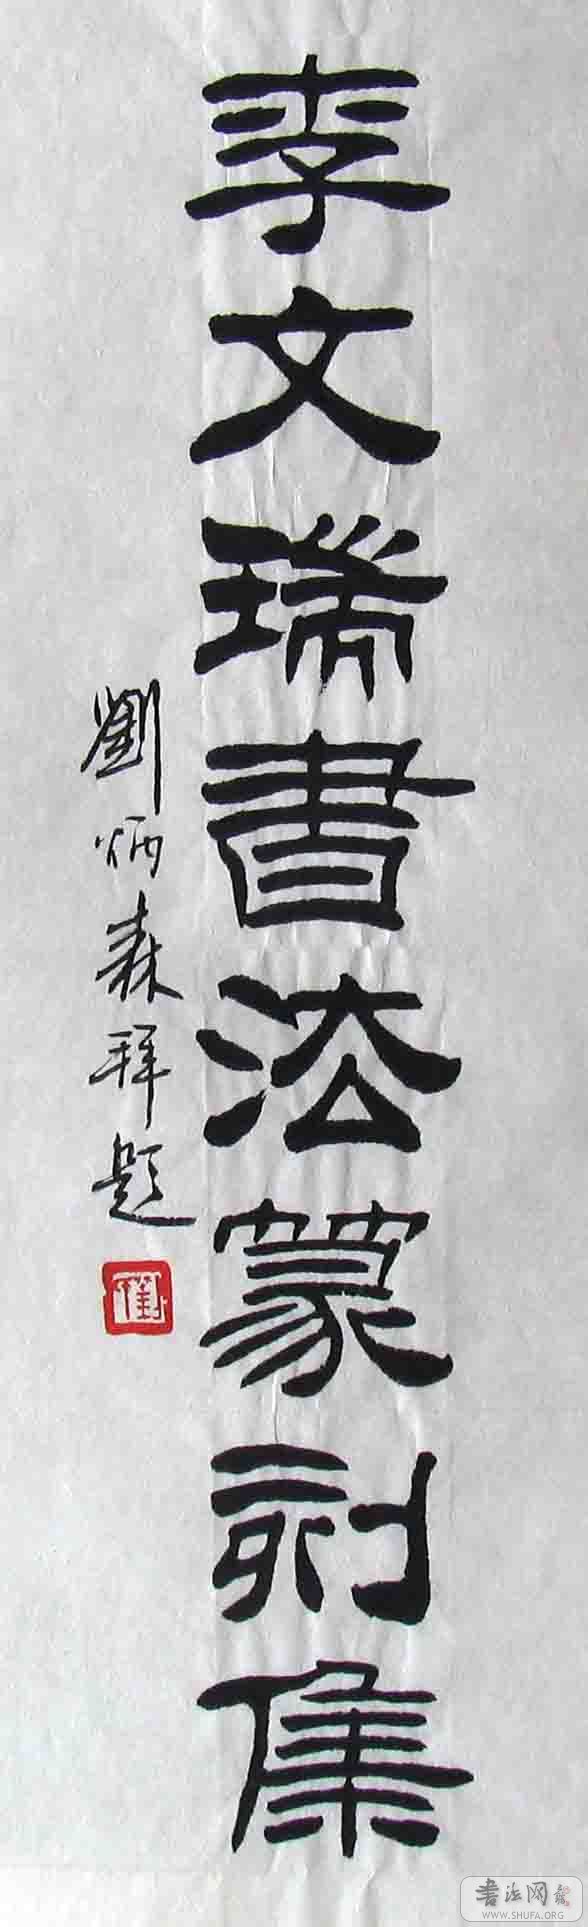 李文瑞書法篆刻集
劉炳森拜題
劉
書法网
WWW.SHUFA.ORG